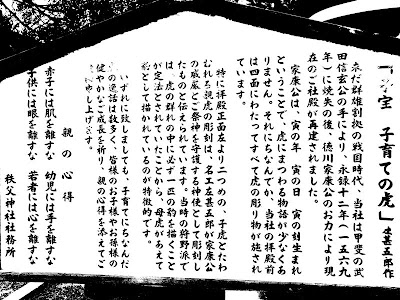 子宝 子育ての虎 左甚五郎作
未だ群雄割拠の戦国時代、当社は甲斐の武
田信玄公の手により、永禄十二年(一五六九
年)に焼失の後、徳川家康公のお力により現
在のご社殿が再建されました。
家康公は、寅の年 寅の日 寅の刻生まれ
ということで、虎にまつわる物語が少なくあ
りません。それにちなんでか、当社の拝殿前
は四面にわたってすべて虎の彫り物が施され
ています。
特に拝殿正面左より二つめの、子虎とたわ
むれる親虎の彫刻は、名工左甚五郎が家康公
の威厳とご祭神を守護する神使として彫刻し
たものと伝えられています。当時の狩野派で
は、虎の群れの中に必ず一匹の豹を描くこと
が定法とされていたことから、母虎があえて
豹として描かれているのが特徴的です。
いずれに致しましても、子育てにちなんだ
の逸話は数多く、皆様のお子様やお孫様の
健やかなご成長を祈り、親の心得を添えてご
申し上げます。
親の心得
赤子には肌を離すな 幼児には手を離すな
子供には眼を離すな 若者には心を離すな
秩父神社社務所